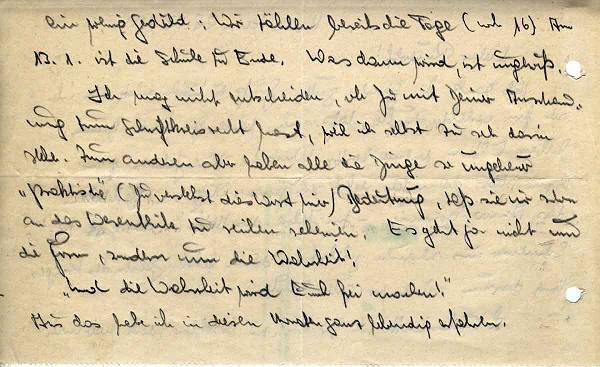 ein wenig Geduld: Wir zählen bereits die Tage (noch 16) Am
13. 1. ist die Schule zu Ende. Was dann wird, ist ungewiß.
Ich mag nicht entscheiden, ob Du mit Deiner Anschau-
ung zum Schriftkreis recht hast, weil ich selbst zu sehr darin
stehe. Zum anderen aber haben alle die Dinge so ungeheuer
„praktische“ (Du verstehst dies Wort hier) Bedeutung, daß sie mir schon
an das Wesentliche zu reichen scheinen. Es geht ja nicht um
die Form, sondern um die Wahrheit!
„Und die Wahrheit wird Euch frei machen!“
Aus das habe ich in diesen ganz lebendig erfahren.